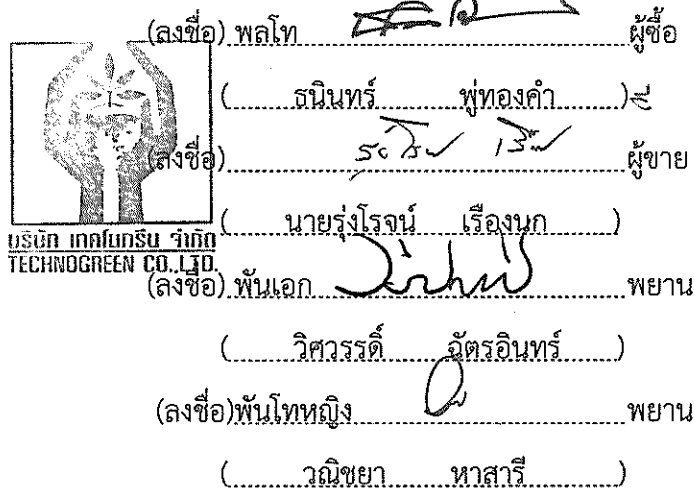 (ลงชื่อ) พลโท ผู้ซื้อ
( ธนินทร์ พู่ทองคำ )
(ลงชื่อ) ผู้ขาย
( นายรุ่งโรจน์ เรืองนก )
บริษัท เทคโนกรีน จำกัด
TECHNOGREEN CO.,LTD.
(ลงชื่อ) พันเอก พยาน
( วิศวรรดิ์ ฉัตรอินทร์ )
(ลงชื่อ)พันโทหญิง พยาน
( วณิชยา หาสารี )